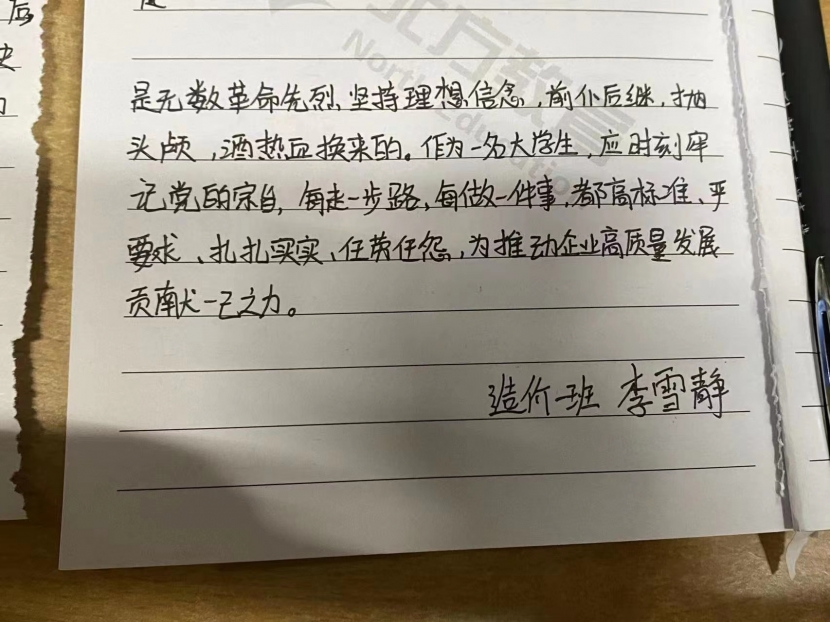 是无数革命先烈坚持理想信念,前仆后继,抛
头颅,洒热血换来的。作为一名大学生,应时刻牢
记党的宗旨,每走一步路,每做一件事,都高标准、严
要求、扎扎实实、任劳任怨,为推动企业高质量发展
贡献一己之力。
造价一班 李雪静
北方教育
North Education
后